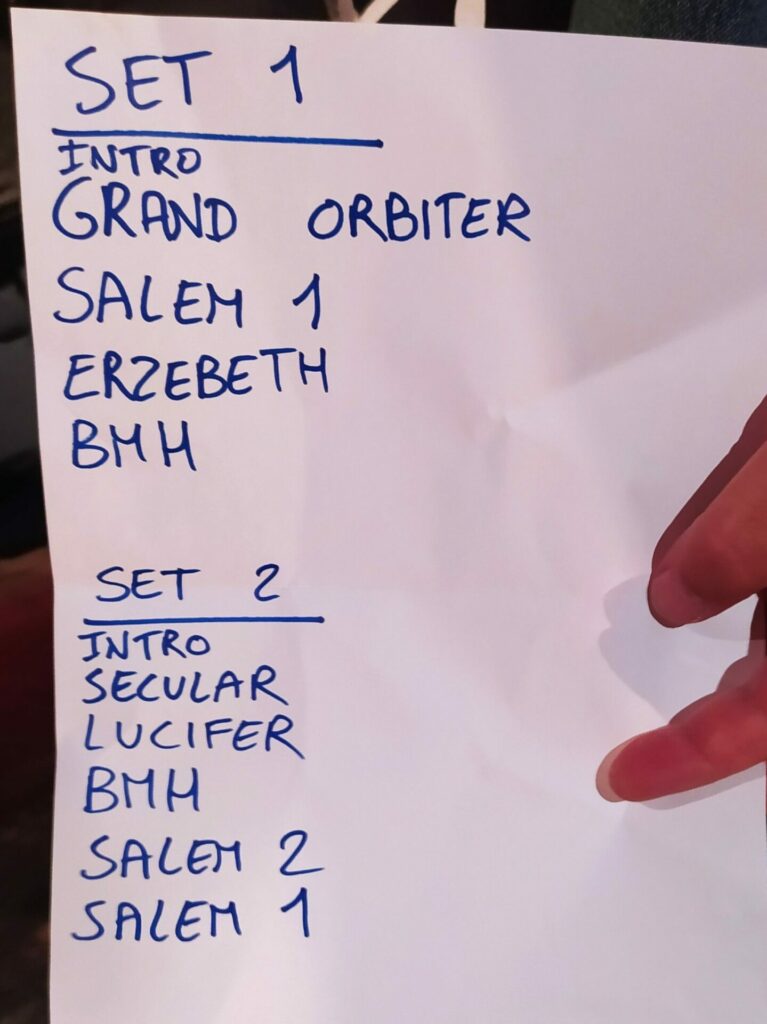 SET 1
INTRO
GRAND ORBITER
SALEM 1
ERZEBETH
BMH
SET 2
INTRO
SECULAR
LUCIFER
BMH
SALEM 2
SALEM 1